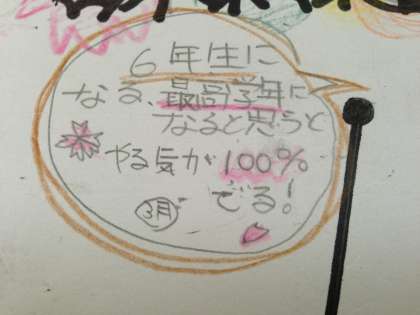 6年生に
なる、最高学年に
なると思うと
やる気が100%
でる!
3月